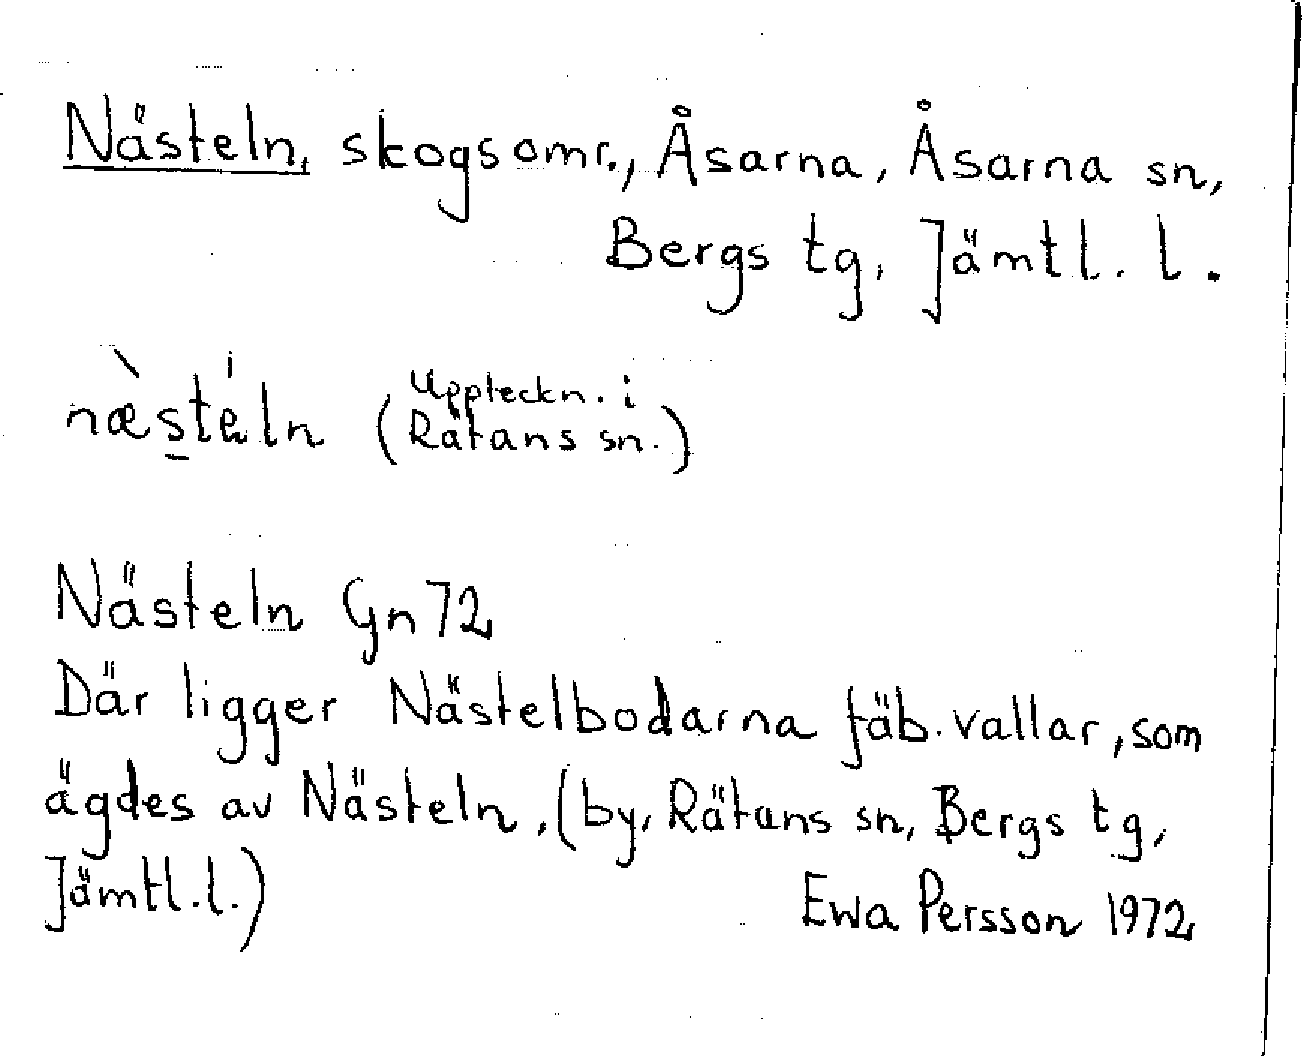 Nästeln, skogsomr., Åsarna, Åsarna sn,
Bergs tg, Jämtl. l.
næ̀stéln (Uppteckn. i
Rätans sn.)
Nästeln Gn 72
Där ligger Nästelbodarna fäb.vallar, som
ägdes av Nästeln, (by, Rätans sn, Bergs tg,
Jämtl.l.)
Ewa Persson 1972